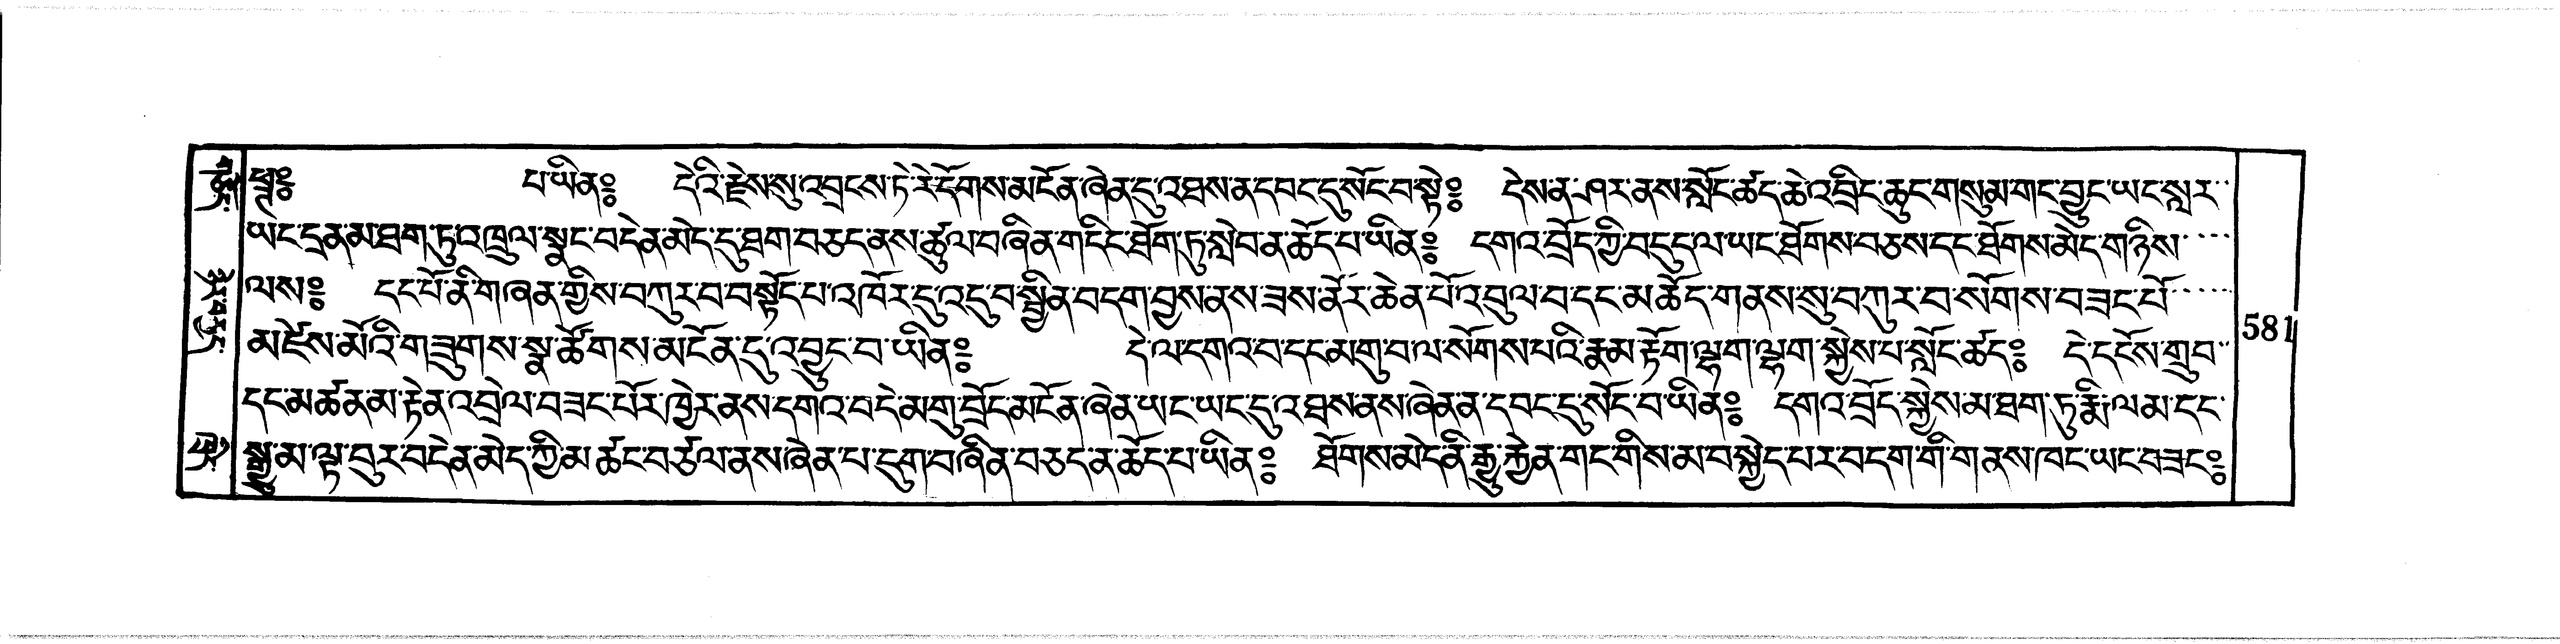 པ་ཡིན༔ དེའི་རྗེས་སུ་འབྲངས་ཏེ་རེ་དོགས་མངོན་ཞེན་དུ་འཐས་ན་དབང་དུ་སོང་བ་སྟེ༔ དེས་ན་ཤར་ནས་སློང་ཚད་ཆེ་འབྲིང་ཆུང་གསུམ་གང་བྱུང་ཡང་སླར་
ཡང་དྲན་མ་ཐག་ཏུ་འཁྲུལ་སྣང་བདེན་མེད་དུ་ཐག་བཅད་ནས་ཚུལ་བཞིན་གདིང་ཐོག་ཏུ་སླེབ་ན་ཆོད་པ་ཡིན༔ དགའ་བྲོད་ཀྱི་བདུད་ལ་ཡང་ཐོགས་བཅས་དང་ཐོགས་མེད་གཉིས་
ལས༔ དང་པོ་ནི་གཞན་གྱིས་བཀུར་བ་བསྟོད་པ་འཁོར་དུ་འདུ་བ་སྦྱིན་བདག་བྱས་ནས་ཟས་ནོར་ཆེན་པོ་འབུལ་བ་དང་མཆོད་གནས་སུ་བཀུར་བ་སོགས་བཟང་པོ་
མ་ཛེས་མོའི་གཟུགས་སྣ་ཚོགས་མངོན་དུ་འབྱུང་བ་ཡིན༔ དེ་ལ་དགའ་བ་དང་མགུ་བ་ལ་སོགས་པའི་རྣམ་རྟོག་ལྷག་ལྷག་སྐྱེས་པ་སློང་ཚད༔ དེ་དངོས་གྲུབ་
དང་མཚན་མ་རྟེན་འབྲེལ་བཟང་པོར་ཁྱེར་ནས་དགའ་བདེ་མགུ་བྲོད་མངོན་ཞེན་ཡང་ཡང་དུ་འཐས་ནས་ཞེན་ན་དབང་དུ་སོང་བ་ཡིན༔ དགའ་བྲོད་སྐྱེས་མ་ཐག་ཏུ་རྨི་ལམ་དང་
སྒྱུ་མ་ལྟ་བུར་བདེན་མེད་ཀྱི་མཚང་བཙལ་ནས་ཞེན་པ་དུག་བཞིན་བཅད་ན་ཆོད་པ་ཡིན༔ ཐོགས་མེད་ནི་རྒྱུ་རྐྱེན་གང་གིས་མ་བསྐྱེད་པར་བདག་གི་གནས་ཁང་ཡང་བཟང༔
581